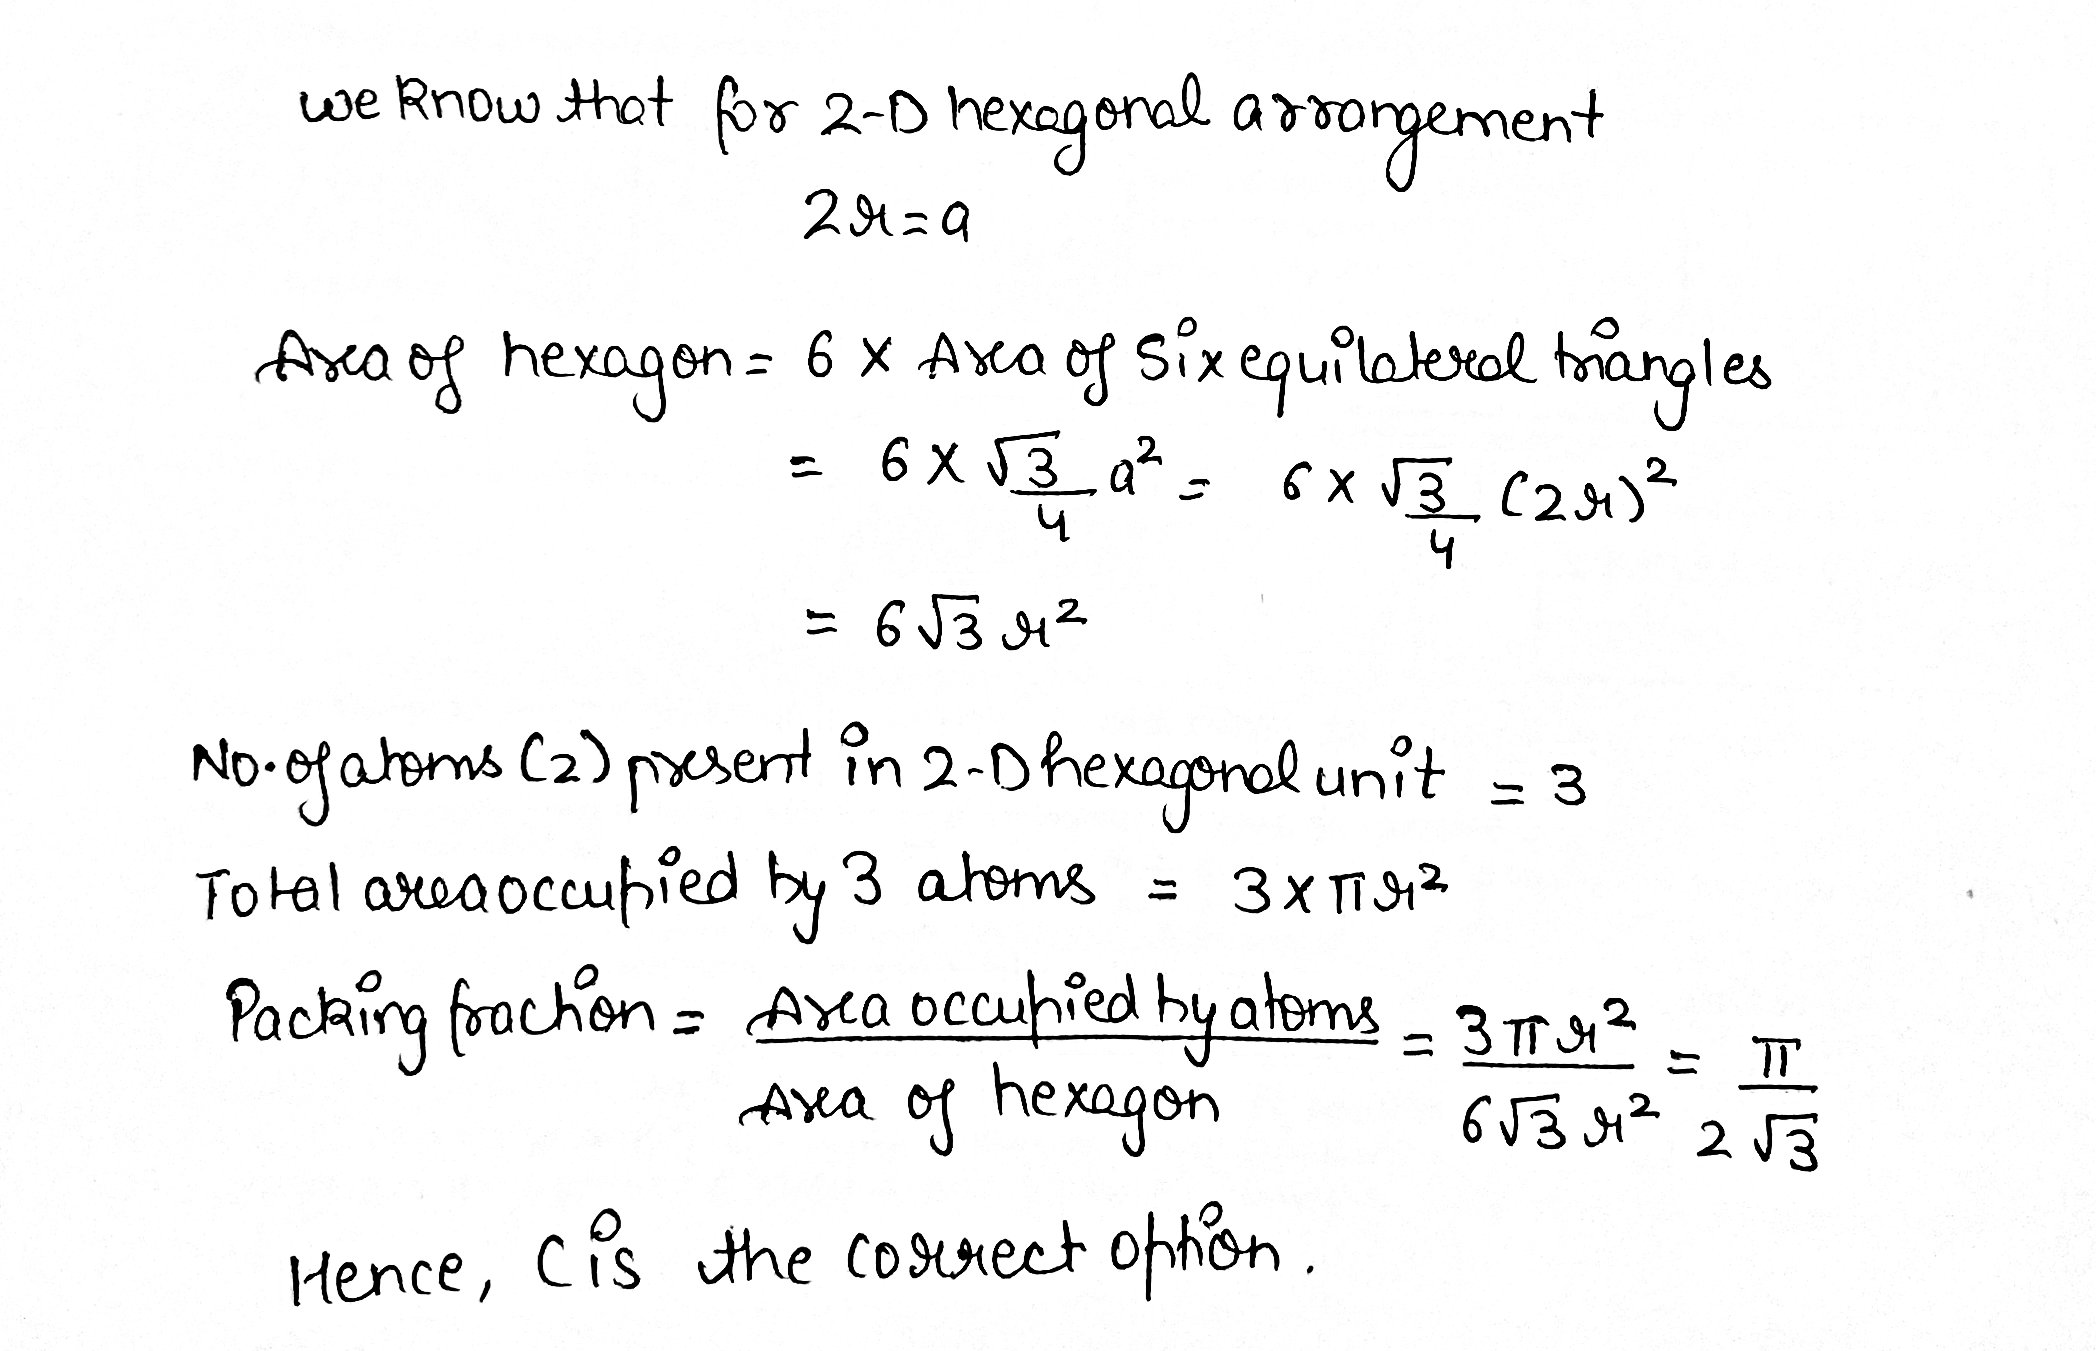 we know that for 2-D hexagonal arrangement
2r=a
Area of hexagon = 6 x Area of Six equilateral triangles
= 6 x √3/4 a² = 6 x √3/4 (2r)²
= 6√3 r²
No. of atoms (z) present in 2-D hexagonal unit = 3
Total area occupied by 3 atoms = 3 x πr²
Packing fraction = Area occupied by atoms/Area of hexagon = 3πr²/6√3 r² = π/2√3
Hence, C is the correct option.